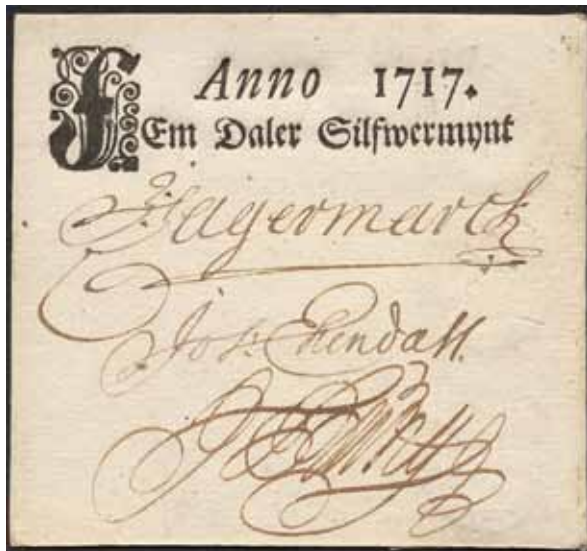 Anno 1717.
FEm Daler Silfwermynt
Fagermarck
Jos: Ehendall.